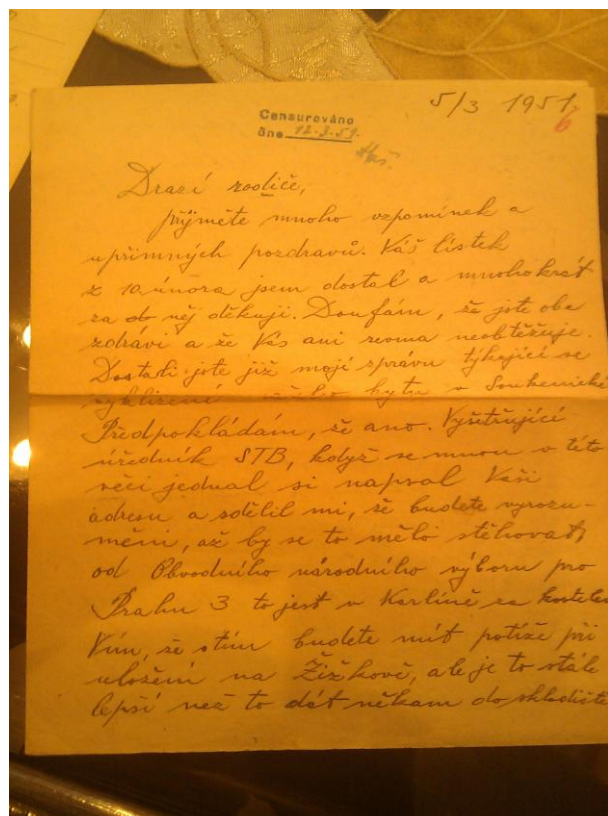 5/3 1951
6
Censurováno
dne 12.3.51.
Drazí rodiče,
přijměte mnoho vzpomínek a
upřímných pozdravů. Váš lístek
z 10. února jsem dostal a mnohokrát
za něj děkuji. Doufám, že jste oba
zdrávi a že Vás ani revma neobtěžuje.
Dostali jste již moji zprávu týkající se
vyklizení bytu v Soukenické
Předpokládám, že ano. Vyšetřující
úředník STB, když se mnou v této
věci jednal si napsal Vaši
adresu a sdělil mi, že budete vyrozu-
měni, až by se to mělo stěhovat,
od Obvodního národního výboru pro
Prahu 3 to jest v Karlíně za kostelem
Vím, že s tím budete mít potíže při
uložení na Žižkově, ale je to stále
lepší než to dát někam do skladiště